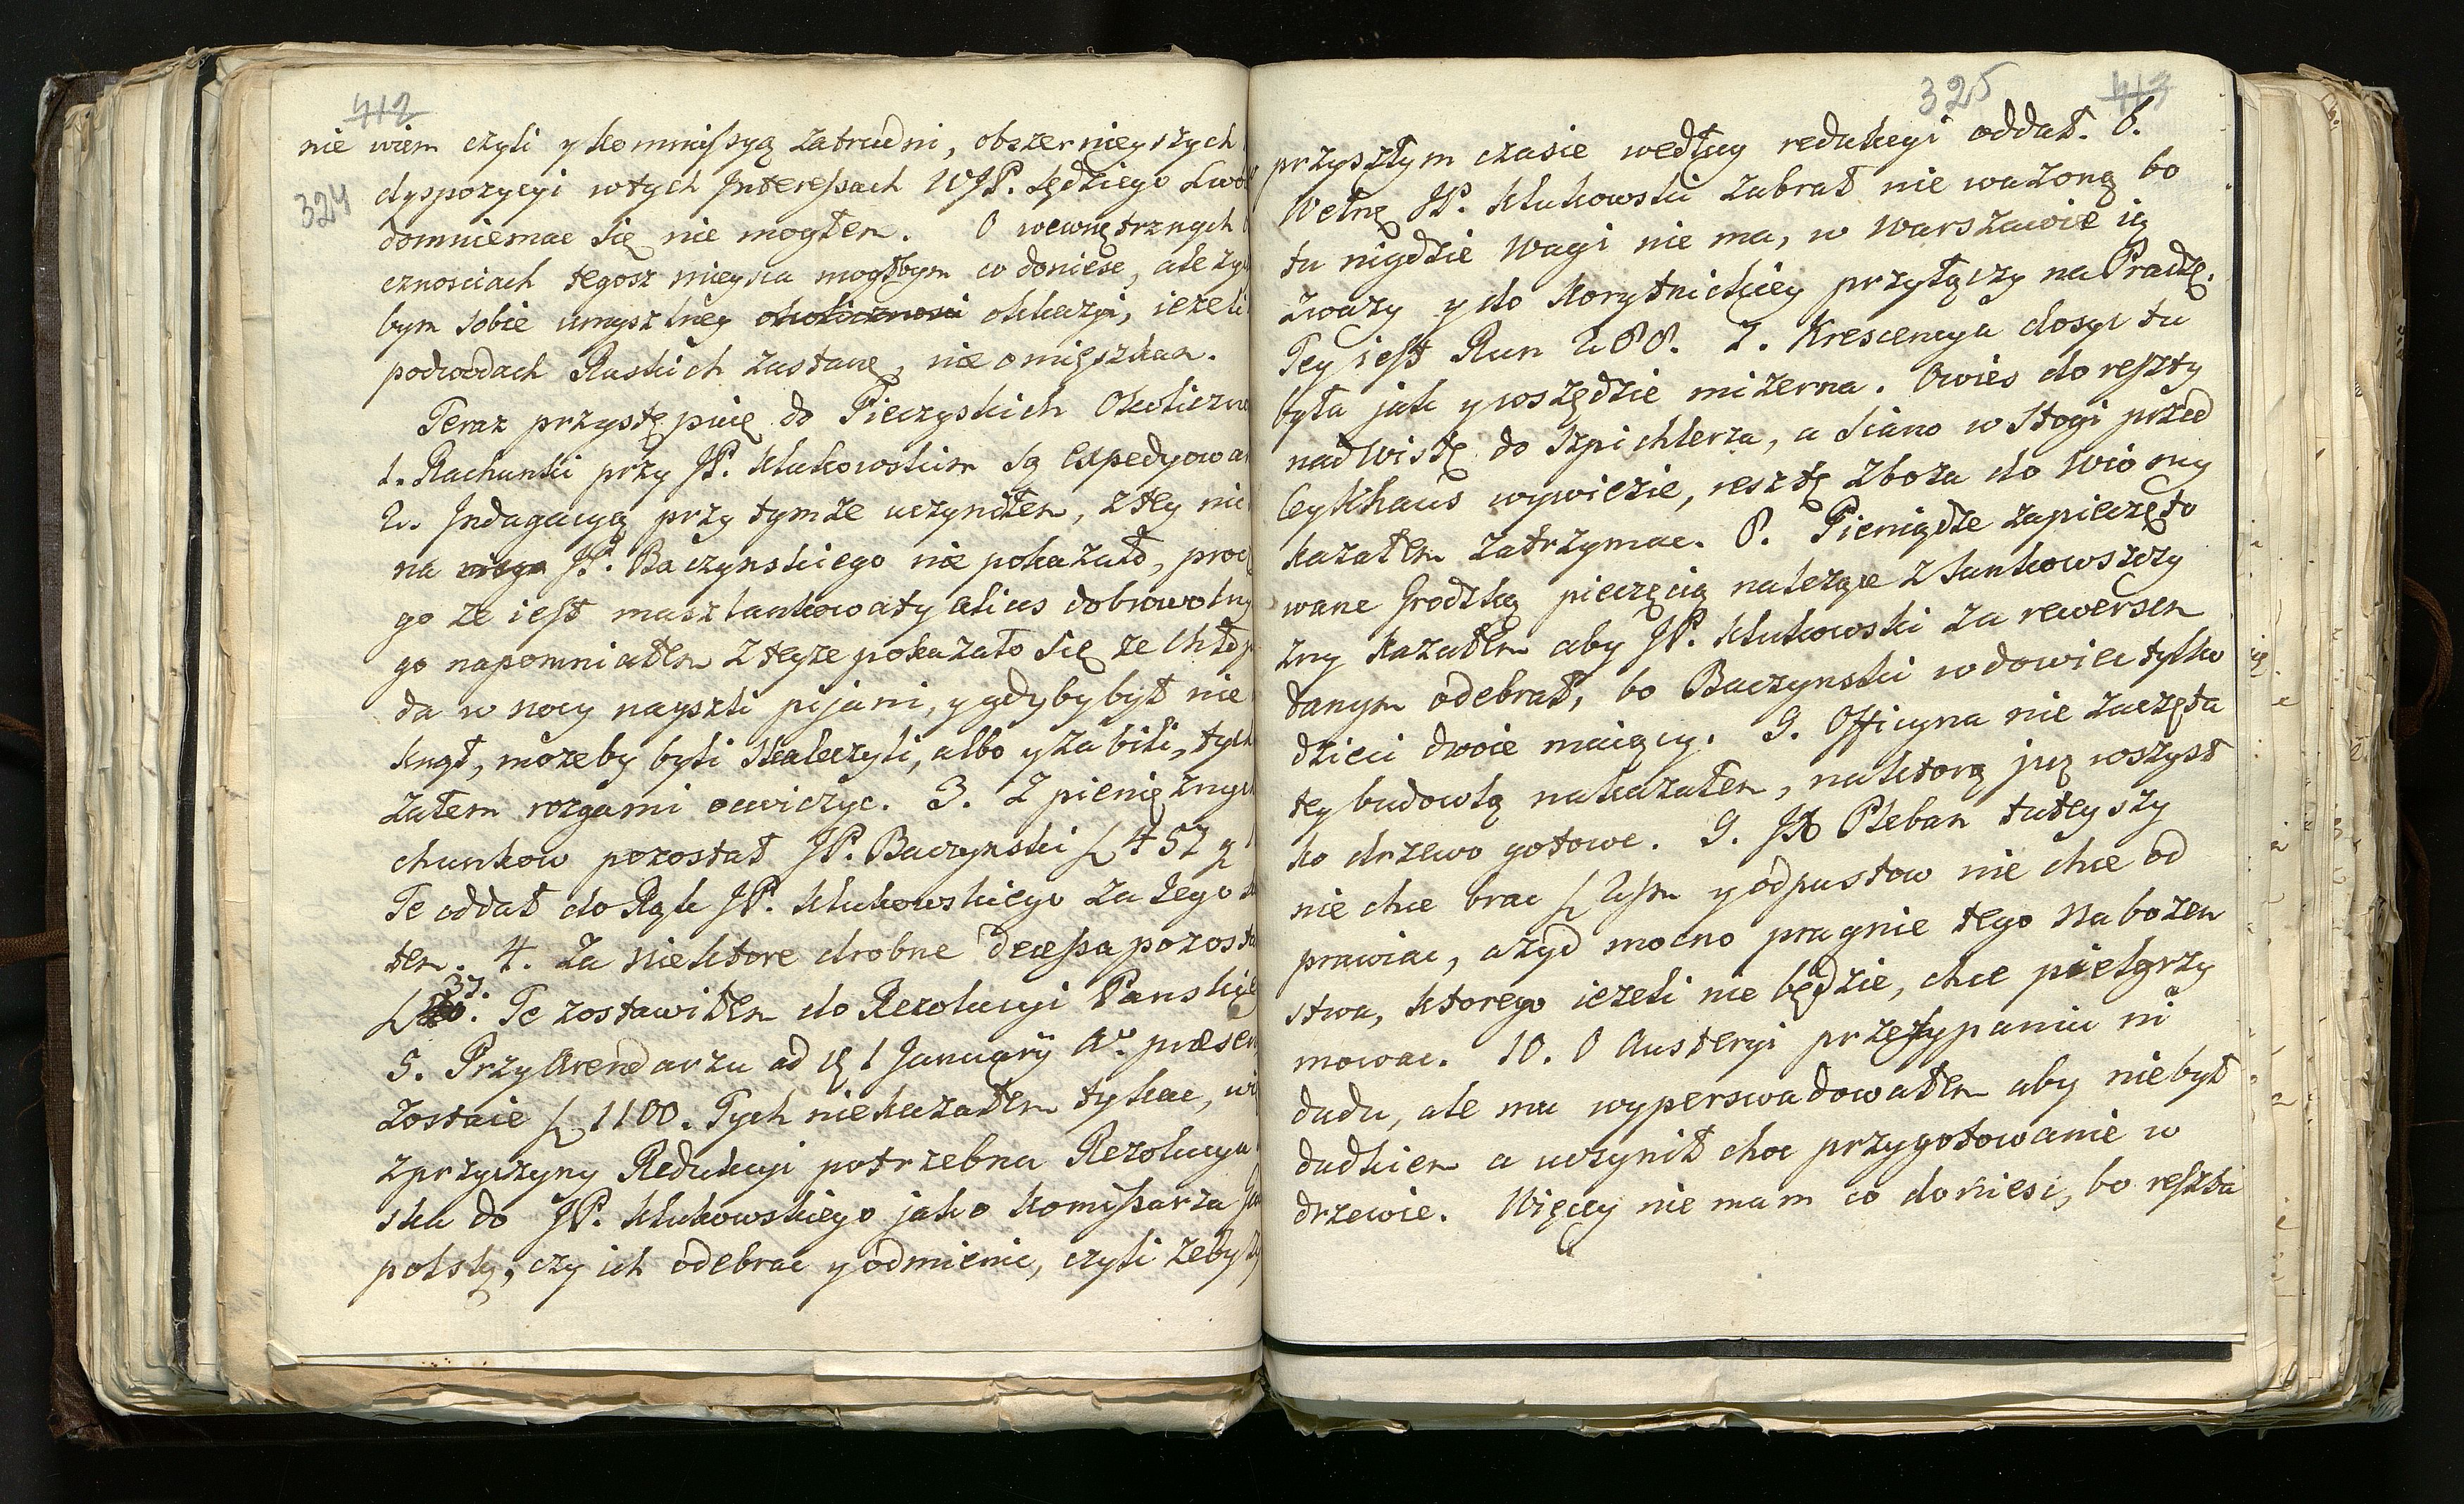 412
nie wiem czyli y kommissyą zatrudni, obszernieyszych
324
dyspozycyi wtych Interessach WJP. Sędziego Lwo
domniemac się nie mogłem. O wewnętrznych
cznosciach tegosz mieysca mogłbym co doniesc, ale zy
bym sobie umyszlney okkazyi, iezeli
podwodach Ruskich zastanę, nie omięszkam.
Teraz przystępuię do Pieczyskich Okoliczno
1. Rachunki przy JP. Klukowskim są expedyowa
2. Indagacyą przy tymze uczyniłem, z tey nic
na JP. Baczynskiego nie pokazało, procz
go ze iest masztankowaty alias dobrowolny
go napomniałem z teyze pokazało się ze Chłop
da w nocy nayszli pijani, y gdyby był nie
knął, mozeby byli skaleczyli, albo y zabili, tych
załem rozgami ocwiczyc. 3. Z pienięznych
chunkow pozostał JP. Baczynski 457
Te oddał do Rąk JP. Klukowskiego za Jego
tem. 4. Za niektore drobne decessa pozosta
37. Te zostawiłem do Rezolucyi Panskiey
5. Przy Arendarzu ad 1 January Ao. præsen
zostaie 1100. Tych niekazałem tykac, wi
z przyczyny Redukcyi potrzebna Rezolucya
ska do JP. Klukowskiego jako Komissarza
polską, czy ich odebrac y odmienic, czyli zeby
325 413
przyszłym czasie według redukcyi oddał. 6.
Wełnę JP. Klukowski zabrał nie wazoną bo
tu nigdzie Wagi nie ma, w Warszawie ią
zwazy y do Korytnickiey przyłączy na Pradze.
Tey iest Run 288. 7. Krescencya dosyc tu
była jak y wszędzie mizerna. Owies do reszty
nad Wisłę do Szpichlerza, a siano w Stogi przed
Ceykhaus wywiezie, resztę zboza do Wiosny
kazałem zatrzymac. 8. Pieniądze zapieczęto
wane Grodzką pieczęcią nalezące z Łankowszczy
zny kazałem aby JP. Klukowski za rewersem
danym odebrał, bo Baczynski wdowiec tylko
dzieci dwoie maiący. 9. Officyna nie zaczęta
tey budowlą nakazałem, na ktorą juz wszyst
ko drzewo gotowe. 9. JX Pleban tuteyszy
nie chce brac y odpustow nie chce od
prawiac, a zyd mocno pragnie tego Nabozen
stwa, ktorego iezeli nie będzie, chce pielgrzy
mowac. 10. O Austeryi przesypaniu ni
dudu, ale mu wyperswadowałem aby niebył
dudkiem a uczynił choc przygotowanie w
drzewie. Więcey nie mam co doniesc, bo reszta